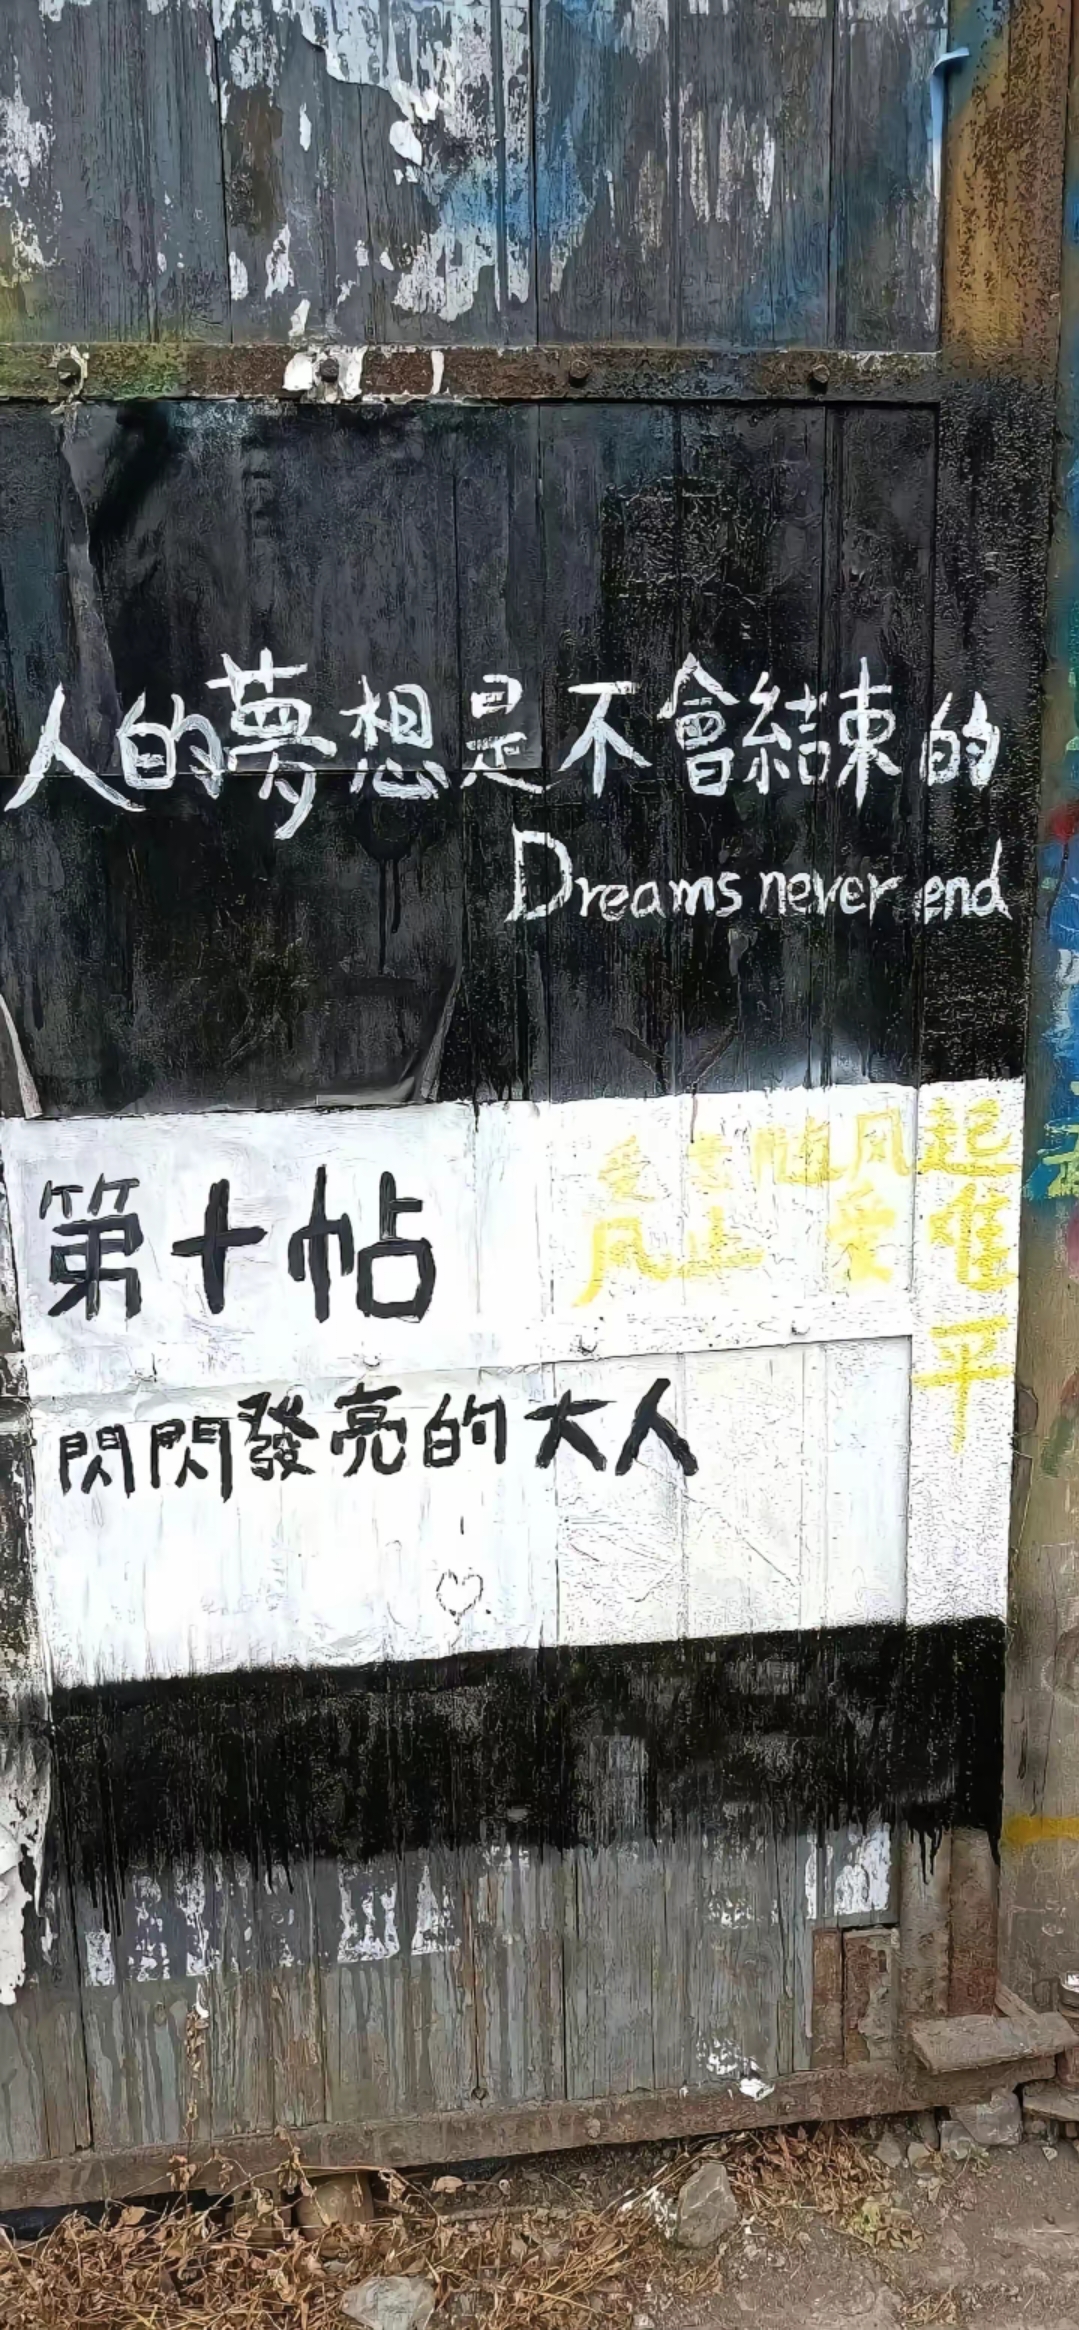 人的夢想是不會結束的
Dreams never end
第十帖
閃閃發亮的大人
爱意随风起
风止爱
难
平